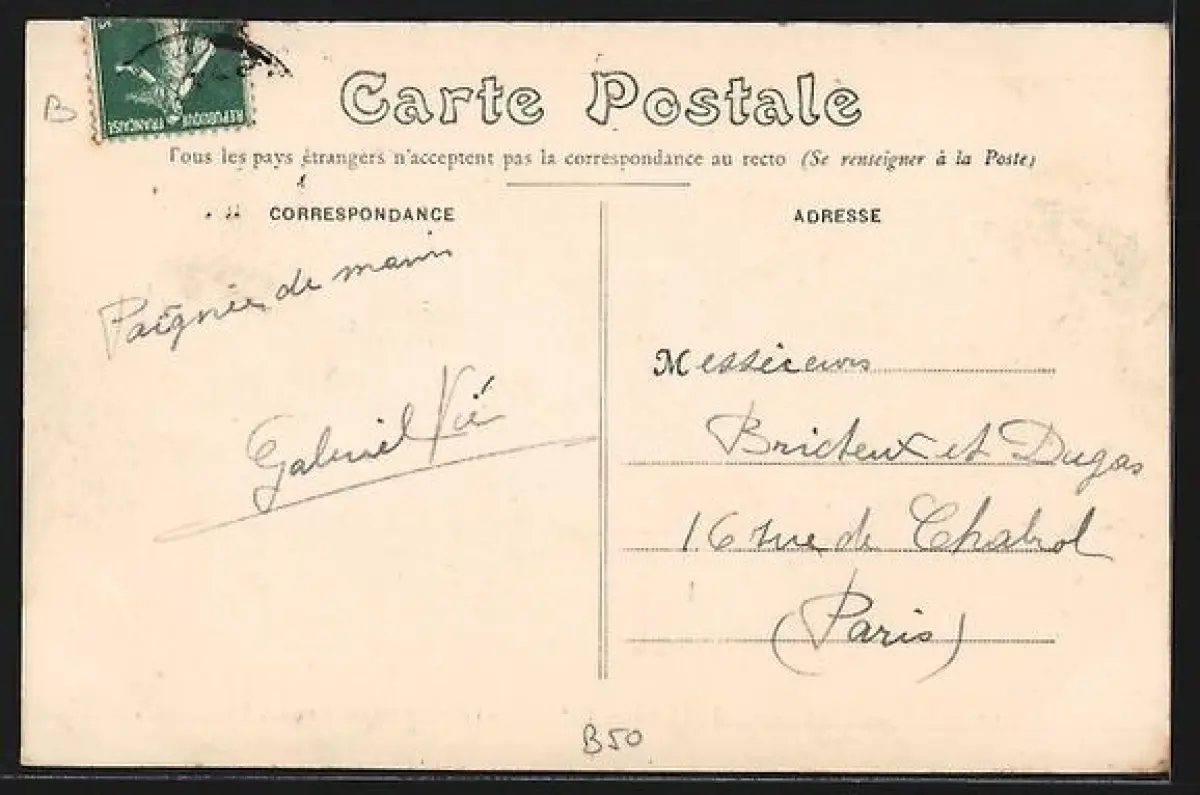 B
5
RÉPUBLIQUE FRANÇAISE
Carte Postale
Tous les pays étrangers n'acceptent pas la correspondance au recto (Se renseigner à la Poste)
CORRESPONDANCE
Poignée de mains
Gabriel Vié
ADRESSE
Messieurs
Bricteux et Dugas
16 rue de Chabrol
(Paris)
B50